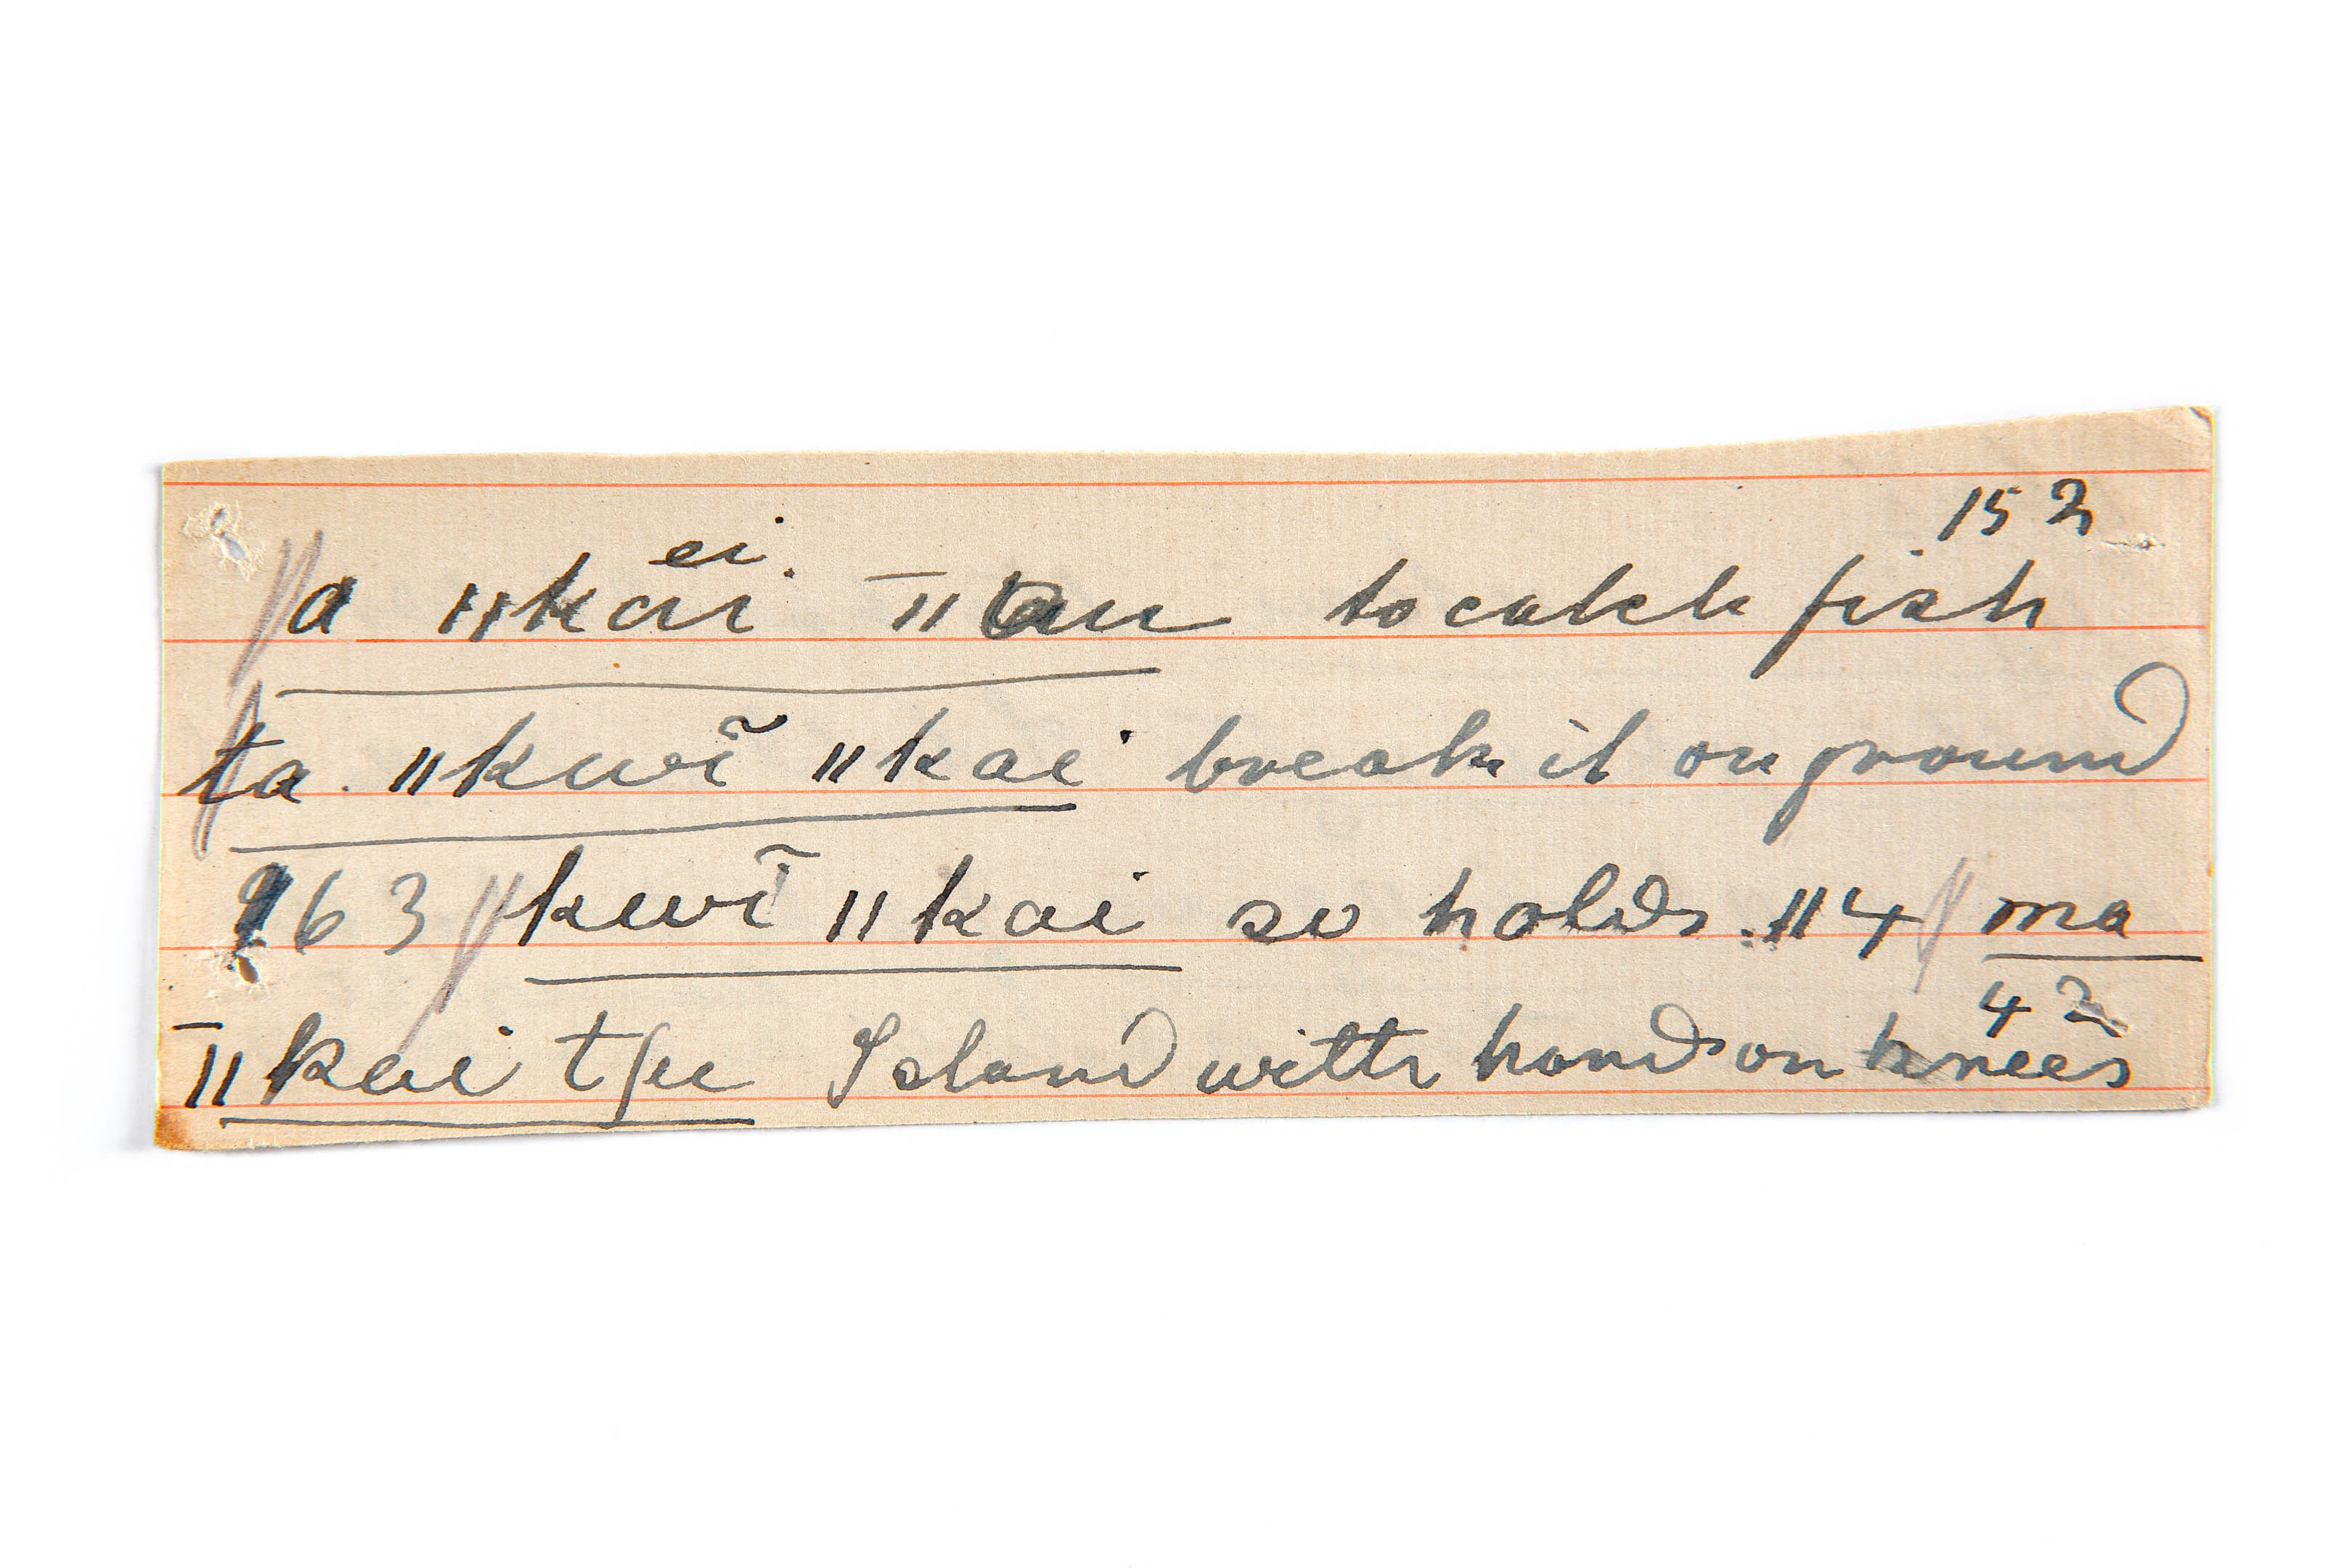 152
ei
a ǁkai ˉǁau to catch fish
ta. ǁkwĩ ǁkai break it on ground
963 kwĩ ǁkai so holds. 114 ma
42
ˉǁkai tʃu I stand with hands on knees